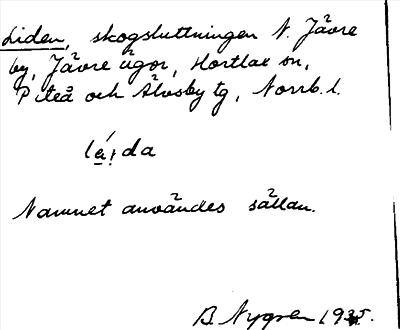 Liden, skogsluttningen N. Jävre
by, Jävre ägor, Hortlax sn,
Piteå och Älvsby tg, Norrb. l.
lá̤ı̣da
Namnet användes sällan.
B. Nygren 1935.